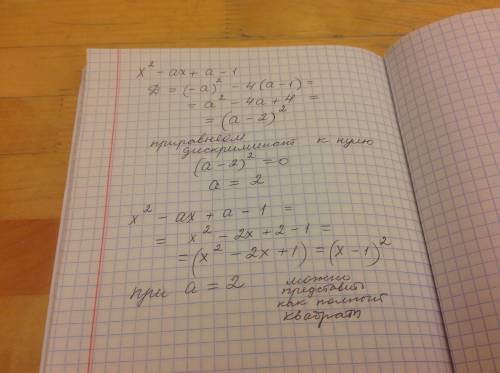 x² - ax + a - 1
D = (-a)² - 4(a-1) =
= a² - 4a + 4 =
= (a-2)²
приравняем
дискриминант к нулю
(a-2)² = 0
a = 2
x² - ax + a - 1 =
= x² - 2x + 2 - 1 =
= (x² - 2x + 1) = (x-1)²
при a = 2
можно
представить
как полный
квадрат